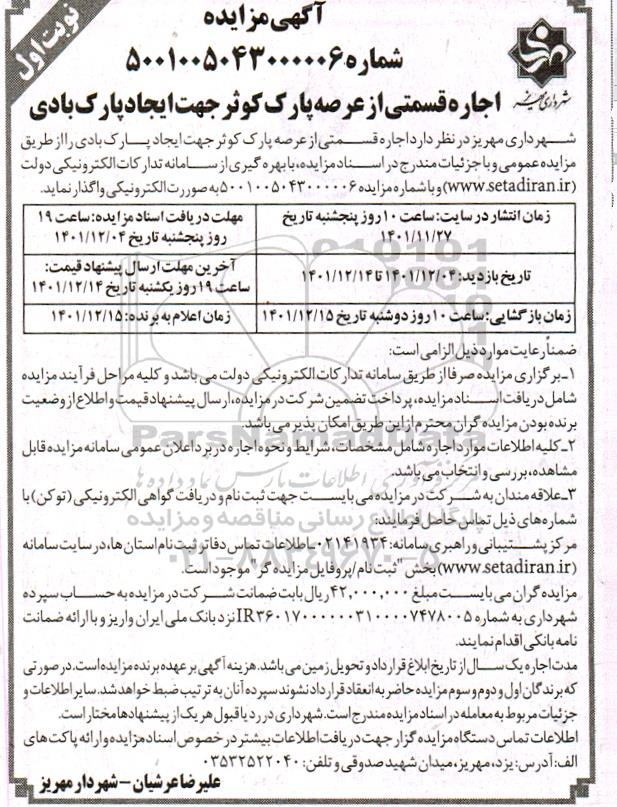 نوبت اول
آگهی مزایده
شماره ۵۰۰۱۰۰۵۰۴۳۰۰۰۰۰۶
شهرداری مهریز
اجاره قسمتی از عرصه پارک کوثر جهت ایجاد پارک بادی
شهرداری مهریز در نظر دارد اجاره قسمتی از عرصه پارک کوثر جهت ایجاد پارک بادی را از طریق
مزایده عمومی و با جزئیات مندرج در اسناد مزایده، با بهره گیری از سامانه تدارکات الکترونیکی دولت
(www.setadiran.ir) و با شماره مزایده ۵۰۰۱۰۰۵۰۴۳۰۰۰۰۰۶ به صورت الکترونیکی واگذار نماید.
زمان انتشار در سایت: ساعت ۱۰ روز پنجشنبه تاریخ
۱۴۰۱/۱۱/۲۷
مهلت دریافت اسناد مزایده: ساعت ۱۹
روز پنجشنبه تاریخ ۱۴۰۱/۱۲/۰۴
تاریخ بازدید: ۱۴۰۱/۱۲/۰۴ تا ۱۴۰۱/۱۲/۱۴
آخرین مهلت ارسال پیشنهاد قیمت:
ساعت ۱۹ روز یکشنبه تاریخ ۱۴۰۱/۱۲/۱۴
زمان بازگشایی: ساعت ۱۰ روز دوشنبه تاریخ ۱۴۰۱/۱۲/۱۵
زمان اعلام به برنده: ۱۴۰۱/۱۲/۱۵
ضمناً رعایت موارد ذیل الزامی است:
۱ـ برگزاری مزایده صرفا از طریق سامانه تدارکات الکترونیکی دولت می باشد و کلیه مراحل فرآیند مزایده
شامل دریافت اسناد مزایده، پرداخت تضمین شرکت در مزایده، ارسال پیشنهاد قیمت و اطلاع از وضعیت
برنده بودن مزایده گران محترم از این طریق امکان پذیر می باشد.
۲ـ کلیه اطلاعات موارد اجاره شامل مشخصات، شرایط و نحوه اجاره در برد اعلان عمومی سامانه مزایده قابل
مشاهده، بررسی و انتخاب می باشد.
۳ـ علاقه مندان به شرکت در مزایده می بایست جهت ثبت نام و دریافت گواهی الکترونیکی (توکن) با
شماره های ذیل تماس حاصل فرمایند:
مرکز پشتیبانی و راهبری سامانه: ۰۲۱۴۱۹۳۴ اطلاعات تماس دفاتر ثبت نام استان ها، در سایت سامانه
(www.setadiran.ir) بخش "ثبت نام/پروفایل مزایده گر" موجود است.
مزایده گران می بایست مبلغ ۴۲,۰۰۰,۰۰۰ ریال بابت ضمانت شرکت در مزایده به حساب سپرده
شهرداری به شماره IR۳۶۰۱۷۰۰۰۰۰۰۳۱۰۰۰۰۷۴۷۸۰۰۵ نزد بانک ملی ایران واریز و یا ارائه ضمانت
نامه بانکی اقدام نمایند.
مدت اجاره یک سال از تاریخ ابلاغ قرارداد و تحویل زمین می باشد. هزینه آگهی بر عهده برنده مزایده است. در صورتی
که برندگان اول و دوم و سوم مزایده حاضر به انعقاد قرارداد نشوند سپرده آنان به ترتیب ضبط خواهد شد. سایر اطلاعات و
جزئیات مربوط به معامله در اسناد مزایده مندرج است. شهرداری در رد یا قبول هر یک از پیشنهادها مختار است.
اطلاعات تماس دستگاه مزایده گزار جهت دریافت اطلاعات بیشتر در خصوص اسناد مزایده و ارائه پاکت های
الف: آدرس: یزد، مهریز، میدان شهید صدوقی و تلفن: ۰۳۵۳۲۵۲۲۰۴۰
علیرضا عرشیان - شهردار مهریز
ParsNamadData
پایگاه اطلاع رسانی مناقصه و مزایده